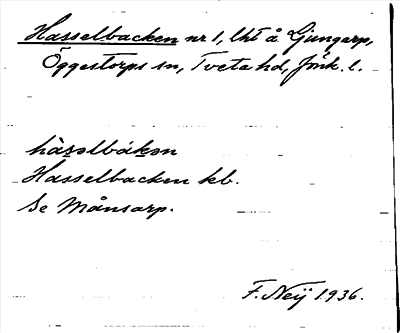 Hasselbacken nr 1, lht å Ljungarp,
Öggestorps sn, Tveta hd, Jönk. l.
hàsəlbákən
Hasselbacken kb.
Se Månsarp.
F. Neij 1936.